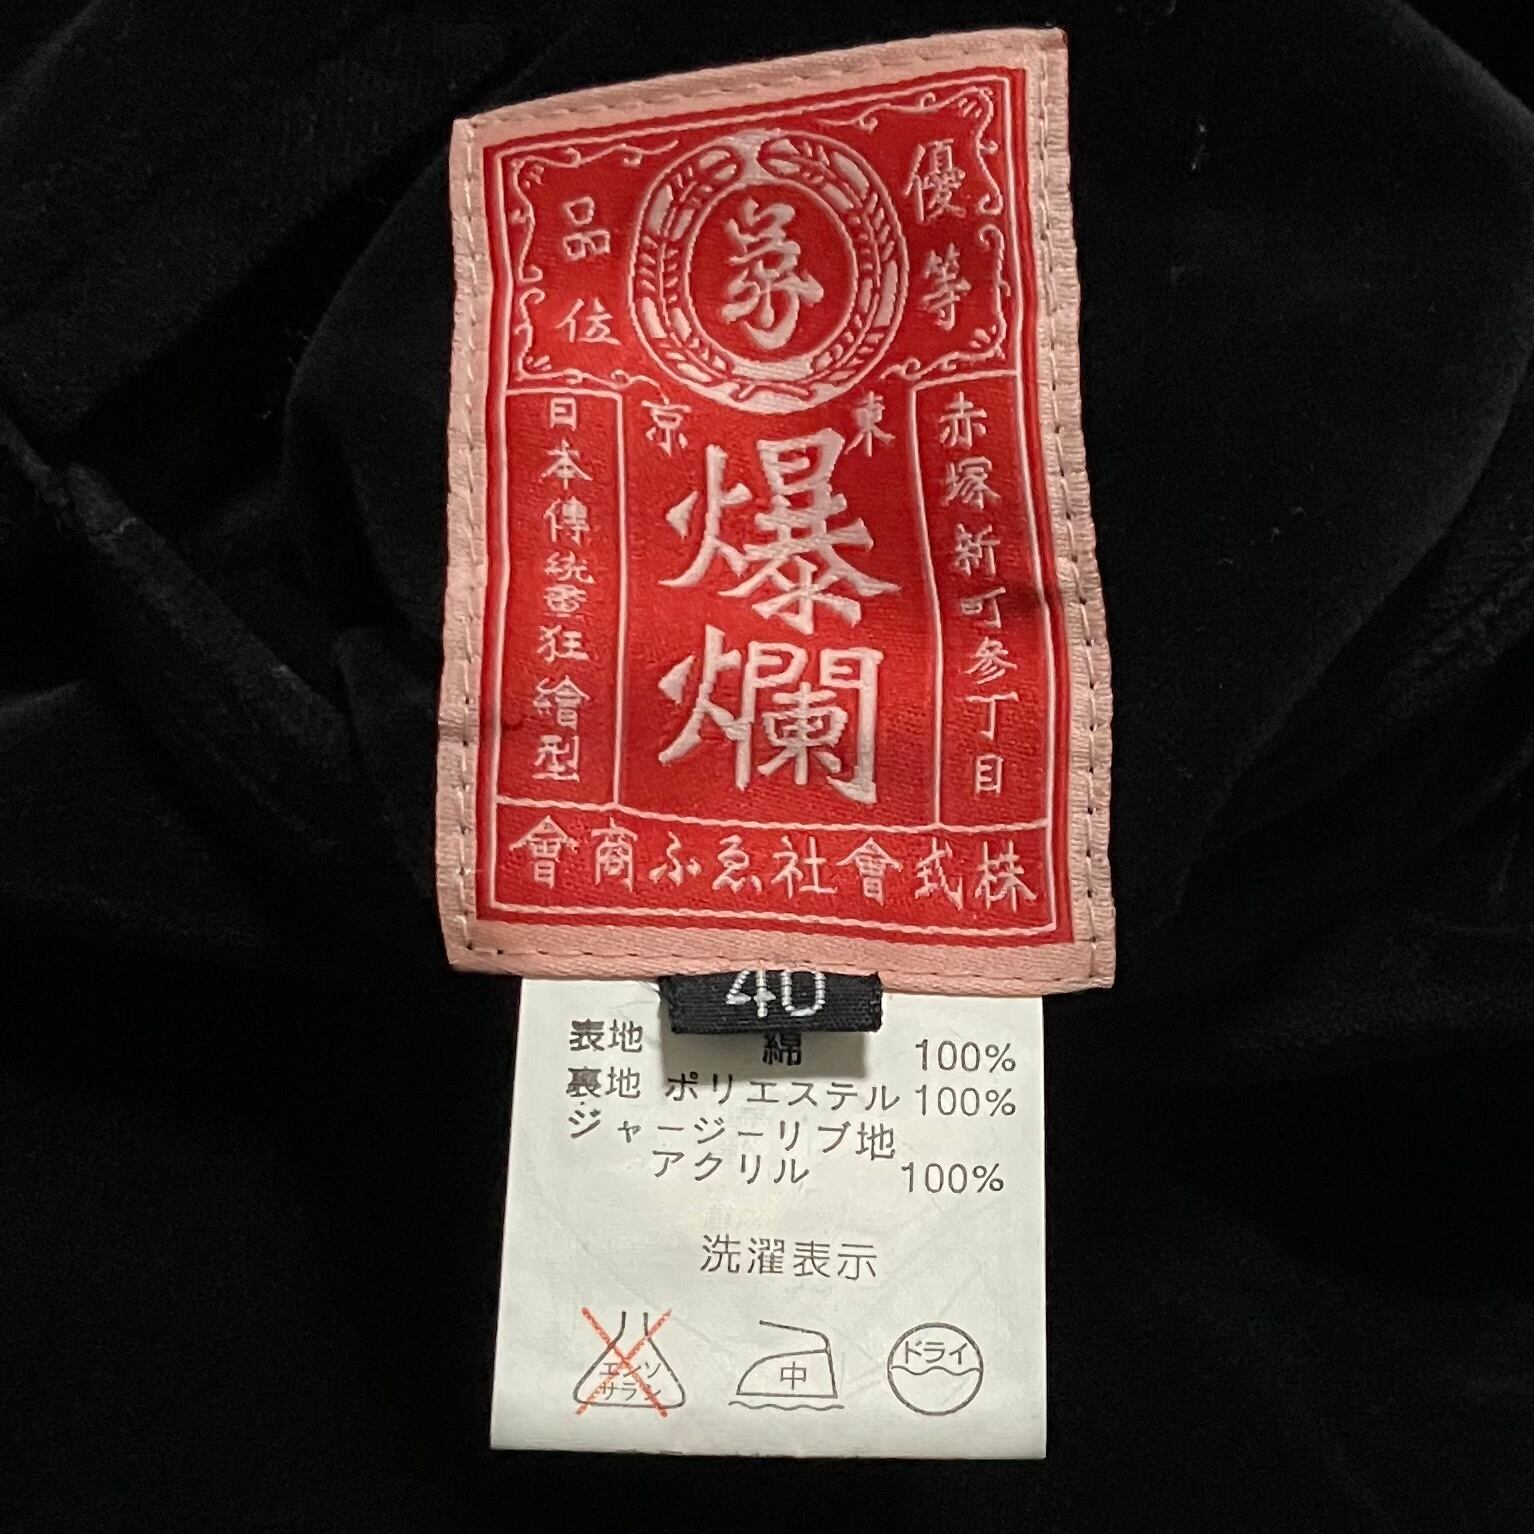 優等
品位
東京
爆爛
赤塚新町参丁目
日本傳統蠻狂繪型
株式會社ゑふ商會
40
表地 綿 100%
裏地 ポリエステル 100%
ジャージーリブ地
アクリル 100%
洗濯表示
エンソ
サラシ
中
ドライ